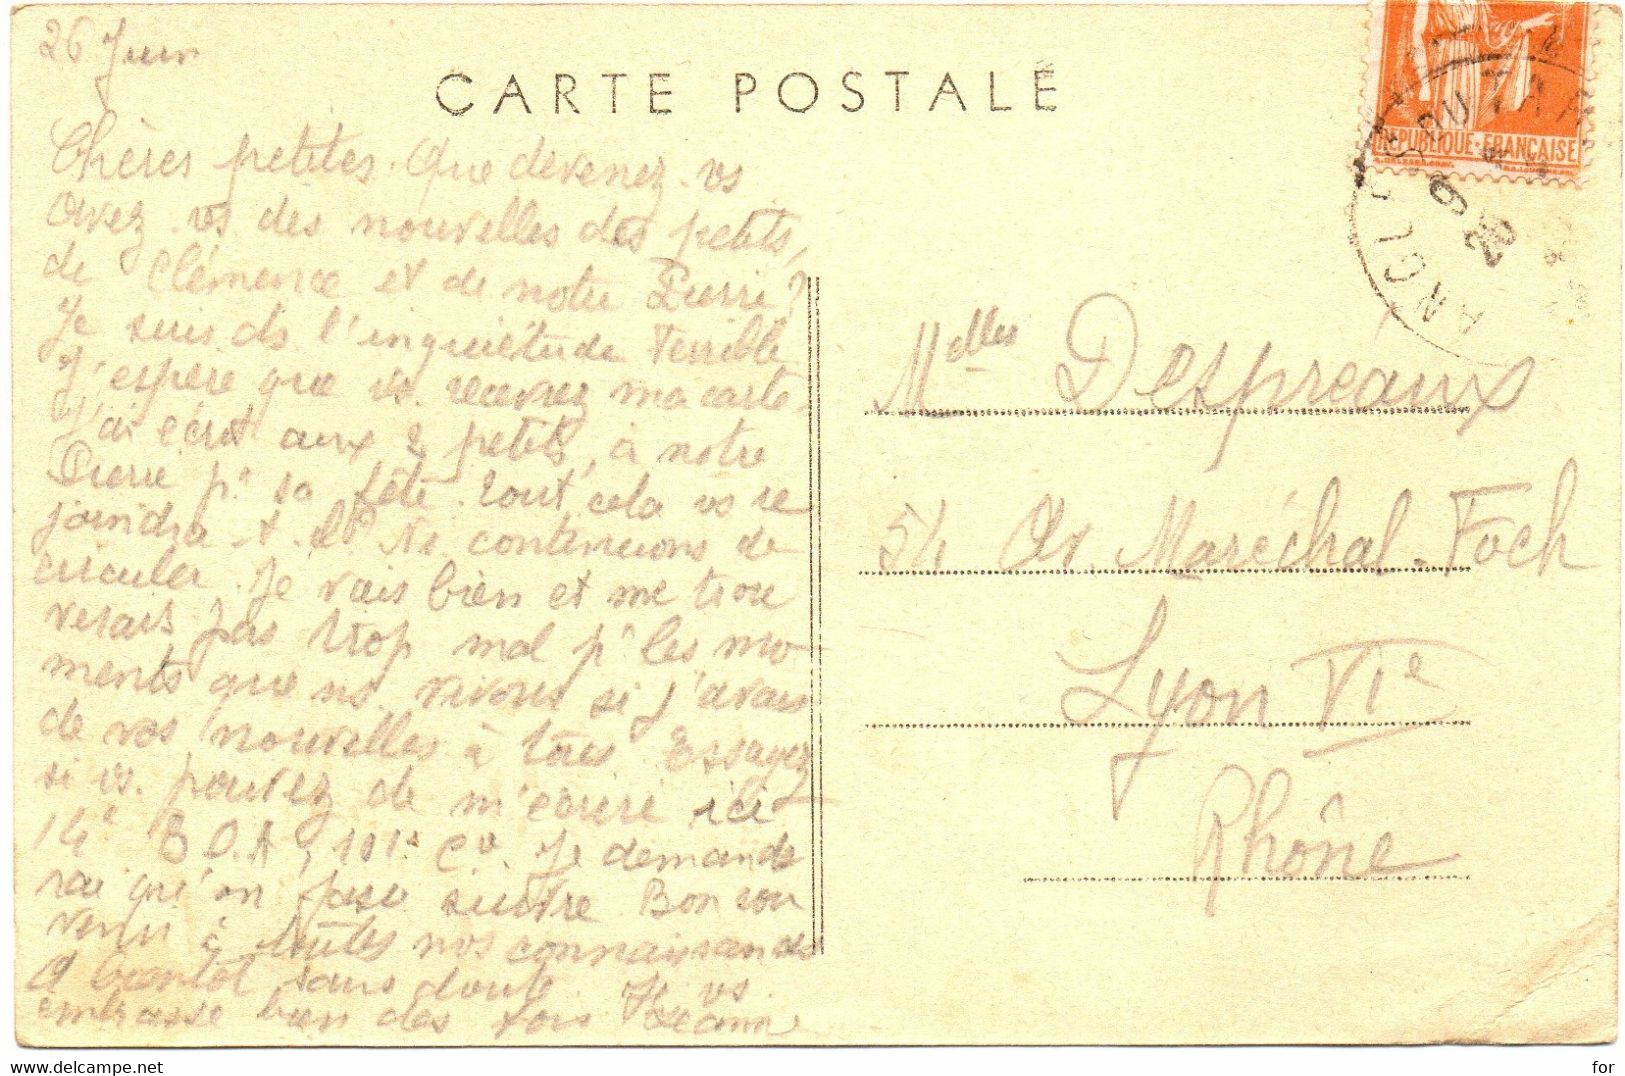 26 Juin
CARTE POSTALE
Chères petites. Que devenez vs
Avez vs des nouvelles des petits,
de Clémence et de notre Pierre?
Je suis ds l'inquiétude Terrible
J'espère que vs. recevrez ma carte.
J'ai écrit aux 2 petits, à notre
Pierre pr sa fête. Tout cela vs re
joindra Ns. continuons de
circuler. Je vais bien et me trou
verais pas trop mal pr les mo-
ments que ns. vivons si j'avais
de vos nouvelles à tous Essayez
si vs. pouvez de m'écrire ici
14e B.O.A, 101e Cie. Je demande
rai qu'on fasse suivre. Bon sou
venir à toutes nos connaissances
A bientôt sans doute. Je vs.
embrasse bien des fois Jeanne
REPUBLIQUE·FRANÇAISE
Melles Despreaux
54 Av. Maréchal. Foch
Lyon VIe
Rhône
for
www.delcampe.net